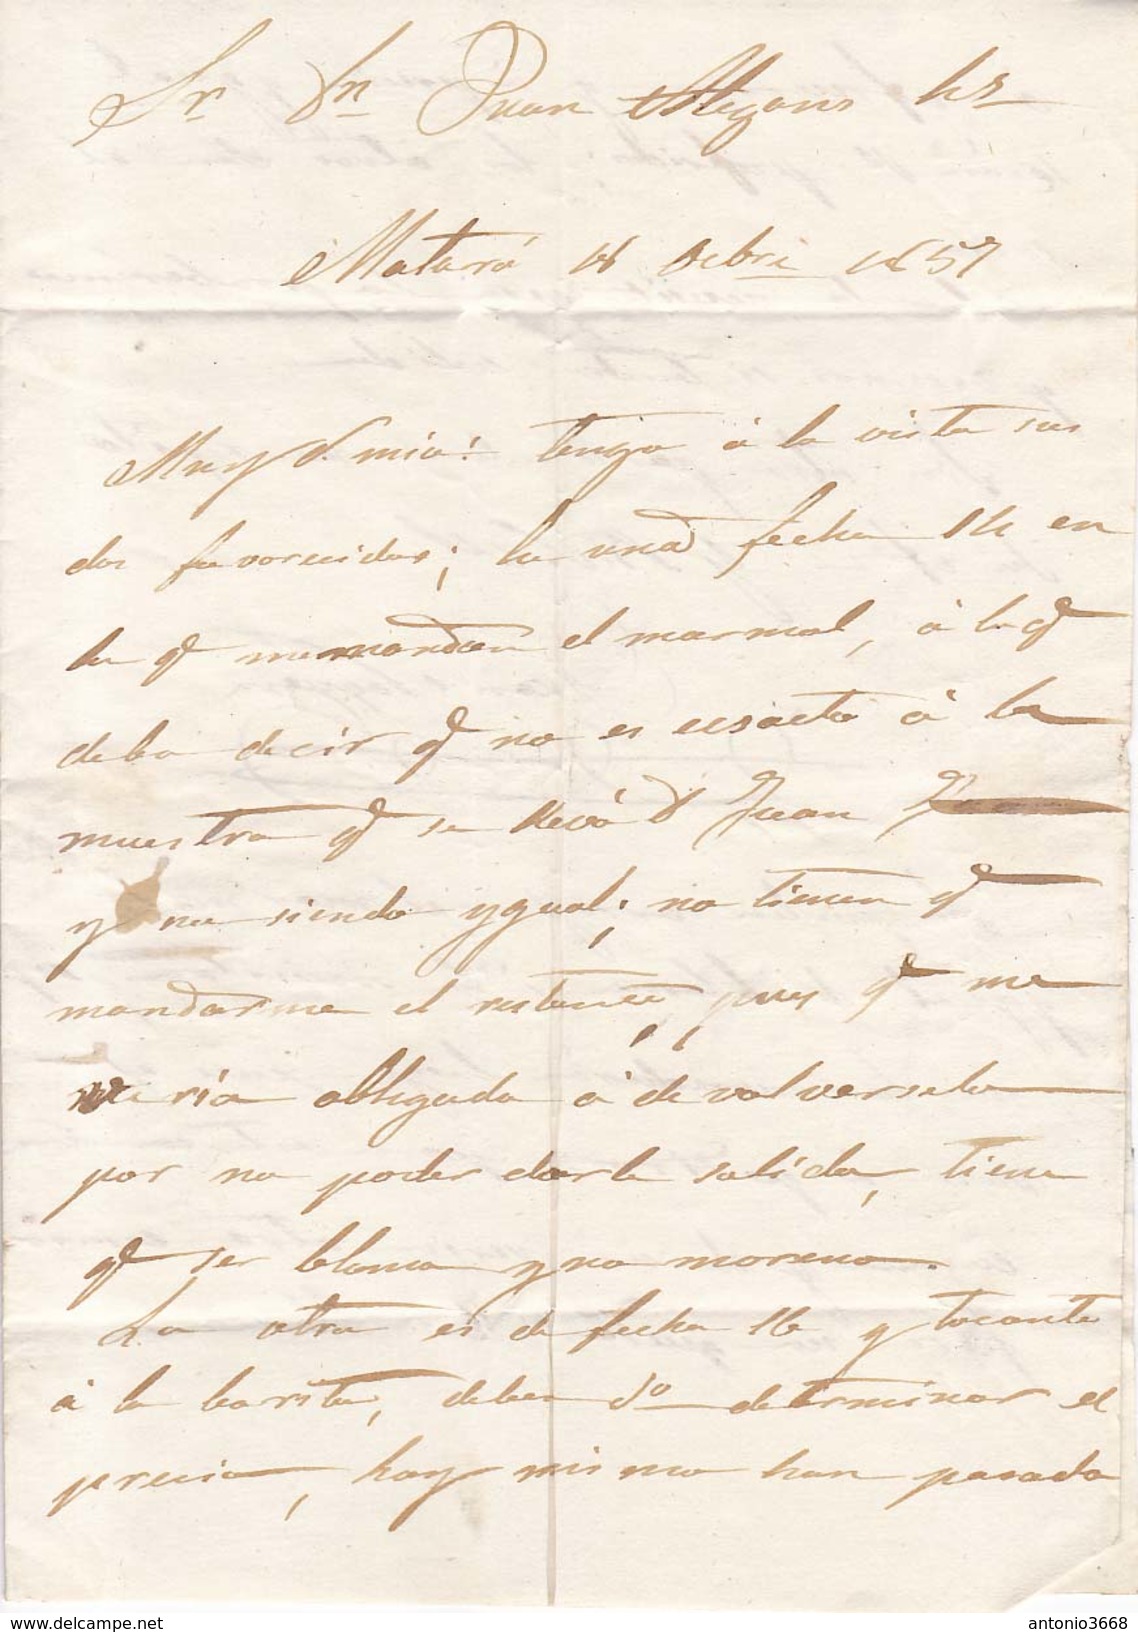 Sr Dn Juan Alegans hs
Mataró 18 Octbre 1857
Muy S. mio: tengo á la vista sus
dos favorecidas; la una fecha 14 en
la q me mandan el marmol, á la q
debo decir q no es ecsacto á la
muestra q se llevó D Juan
y no siendo ygual, no tienen q
mandarme el restante, pues q me
veria obligado á devolverselo
por no poder darle salida, tiene
q ser blanco y no moreno.
La otra es de fecha 16 y tocante
á la barita, deben determinar el
precio, hoy mismo han pasado
antonio3668